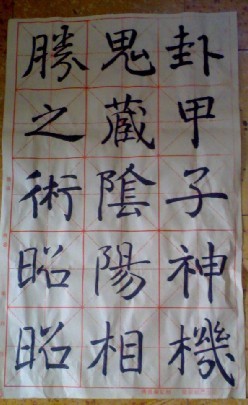 卦甲子神機
鬼蔵陰陽相
勝之術昭昭